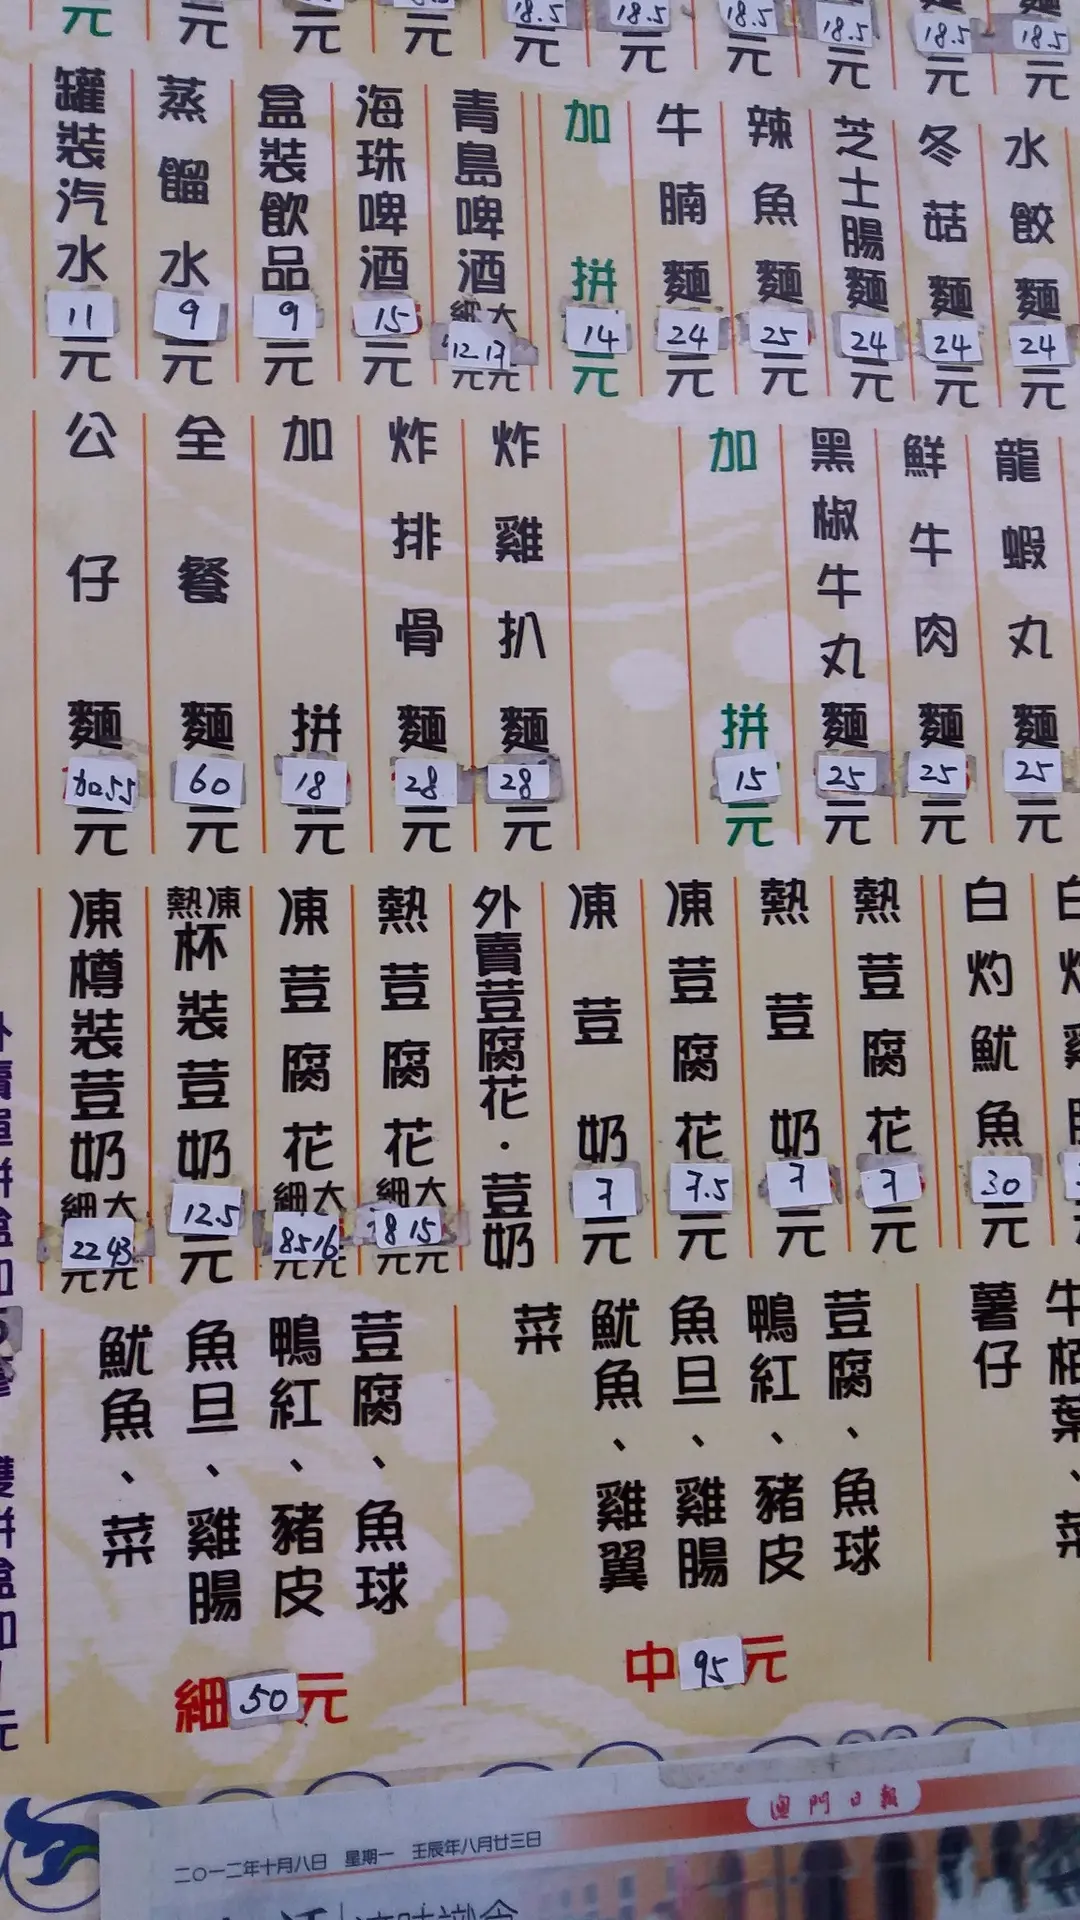 元 元 元 元 18.5元 18.5元 18.5元 18.5元 18.5元 18.5元
水餃麵 24元
冬菇麵 24元
芝士腸麵 24元
辣魚麵 25元
牛腩麵 24元
加拼 14元
青島啤酒 細大 12 17 元元
海珠啤酒 15元
盒裝飲品 9元
蒸餾水 9元
罐裝汽水 11元
龍蝦丸麵 25元
鮮牛肉麵 25元
黑椒牛丸麵 25元
加拼 15元
炸雞扒麵 28元
炸排骨麵 28元
加拼 18元
全餐麵 60元
公仔麵 55元
白灼魷魚 30元
熱荳腐花 7元
熱荳奶 7元
凍荳腐花 7.5元
凍荳奶 7元
外賣荳腐花·荳奶
熱荳腐花 細大 8 15 元元
凍荳腐花 細大 8.5 16 元元
熱凍杯裝荳奶 12.5元
凍樽裝荳奶 細大 22 43 元元
牛栢葉、菜
薯仔
荳腐、魚球
鴨紅、豬皮
魚旦、雞腸
魷魚、雞翼
菜
中95元
荳腐、魚球
鴨紅、豬皮
魚旦、雞腸
魷魚、菜
細50元
澳門日報
二〇一二年十月八日 星期一 壬辰年八月廿三日